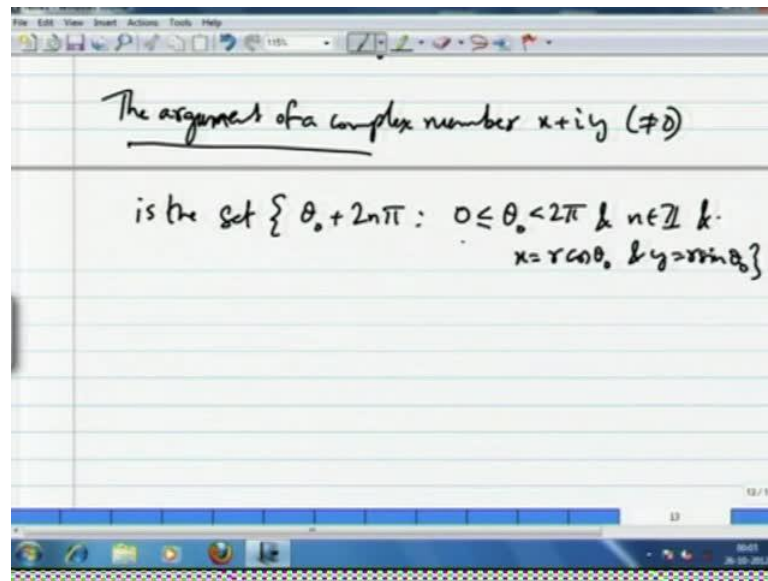 File Edit View Insert Actions Tools Help
115%
The argument of a complex number x+iy (≠0)
is the set { θ₀ + 2nπ : 0 ≤ θ₀ < 2π & n∈ℤ &
x = r cos θ₀ & y = r sin θ₀}
12/1
13
00:03
26-10-201